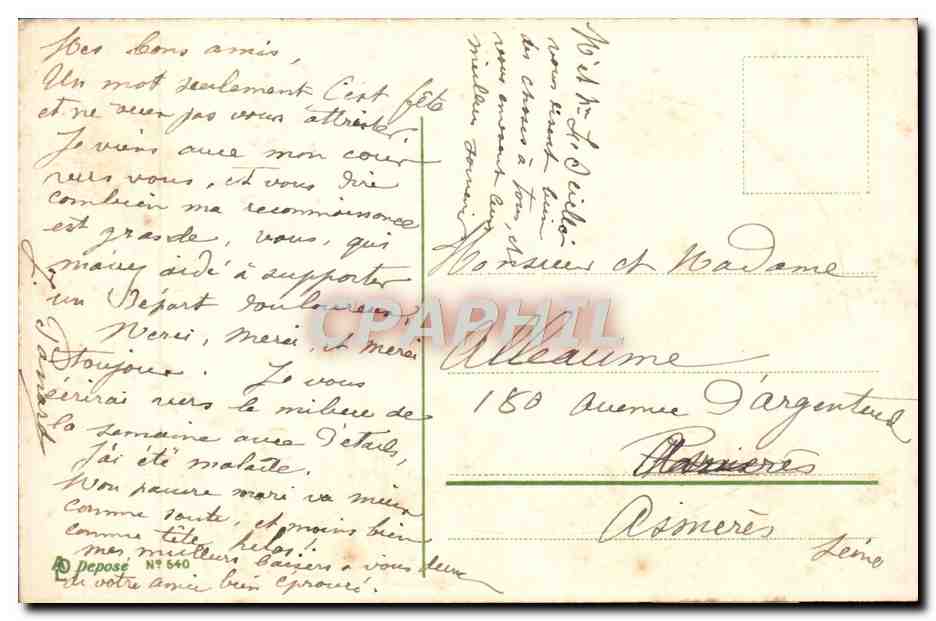 Mes bons amis,
Un mot seulement C'est fête
et ne veux pas vous attrister
Je viens avec mon cœur
vers vous, et vous dire
combien ma reconnaissance
est grande, vous, qui
m'avez aidé à supporter
un Départ douloureux,
Merci, merci, et merci
toujours. Je vous
écrirai vers le milieu de
la semaine avec Détails,
J'ai été malade.
Mon pauvre mari va mieux
comme santé, et moins bien
comme tête, hélas!
mes meilleurs baisers à vous deux
de votre amie bien éprouvée.
M et Mme
vous disent bien
des choses à tous, et
vous envoient leurs
meilleurs
Monsieur et Madame
Alleaume
180 avenue D'argenteuil
Asnierès
Asnierès
Seine
Déposé No 640
CPAPHIL